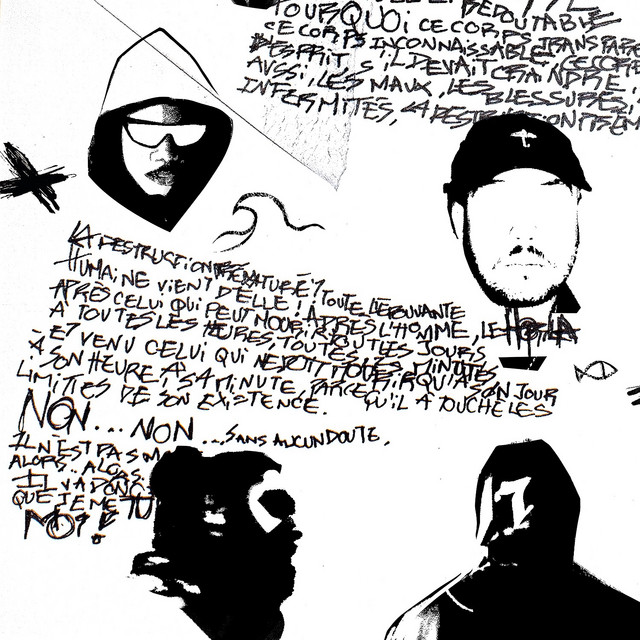 POURQUOI CE CORPS
REDOUTABLE
CE CORPS INCONNAISSABLE,
ESPRIT, S'IL DEVAIT CRAINDRE,
AUSSI, LES MAUX, LES BLESSURES,
INFIRMITÉS, LA DESTRUCTION PREM
LA DESTRUCTION PREMATURÉ? TOUTE L'EPOUVANTE
HUMAINE VIENT D'ELLE! APRÈS L'HOMME, LE HOLA
APRÈS CELUI QUI PEUT MOURIR TOUS LES JOURS
À TOUTES LES HEURES, TOUTES MINUTES
EST VENU CELUI QUI NE DOIT SON JOUR
À SON HEURE, À SA MINUTE, PARCE QU'IL A TOUCHÉ LES
LIMITES DE SON EXISTENCE.
NON... NON... SANS AUCUN DOUTE,
IL N'EST PAS M
ALORS.. ALORS
IL VA DONC
QUE JE ME TU
MOI!